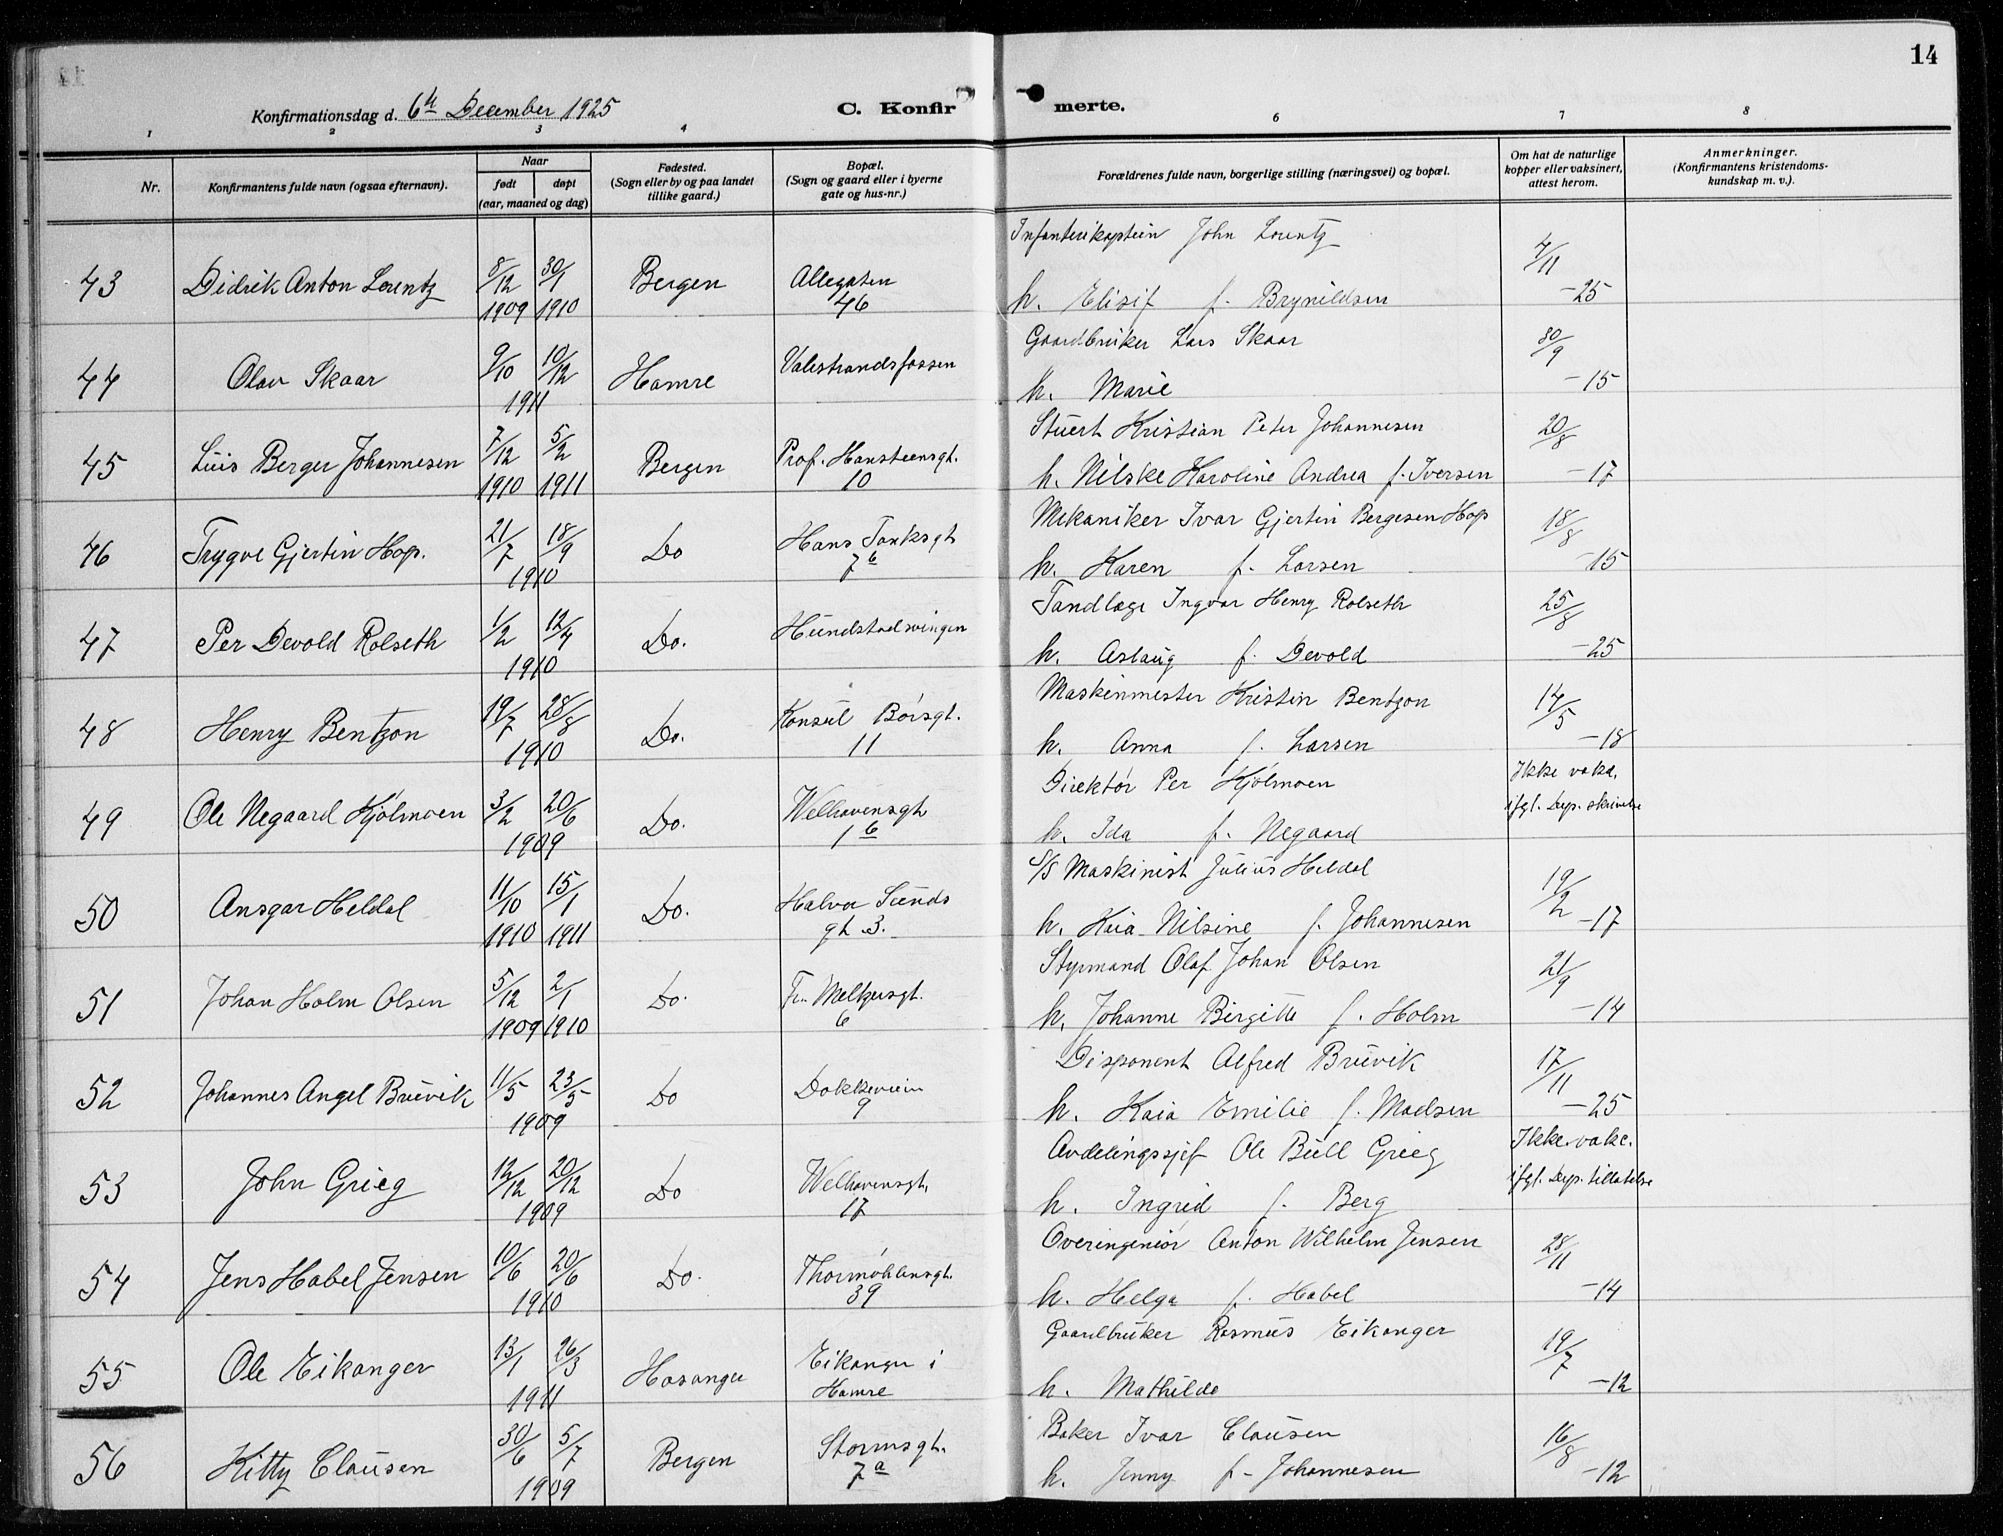 14
Konfirmationsdag d. 6te December 1925 C. Konfirmerte.
1 2 3 4 6 7 8
Nr. Konfirmantens fulde navn (ogsaa efternavn). Naar født døpt (aar, maaned og dag) Fødested. (Sogn eller by og paa landet tillike gaard.) Bopæl. (Sogn og gaard eller i byerne gate og hus-nr.) Forældrenes fulde navn, borgerlige stilling (næringsvei) og bopæl. Om hat de naturlige kopper eller vaksinert, attest herom. Anmerkninger. (Konfirmantens kristendomskundskap m. v.).
Infanterikaptein John Lorentz
43 Didrik Anton Lorentz 8/12 1909 30/1 1910 Bergen Allegaten 46 h. Elisif f. Brynildsen 7/11 -25
Gaardbruker Lars Skaar
44 Olav Skaar 9/10 10/12 1911 Hamre Valestrandsfossen h. Marie 30/9 -15
Stuert Kristian Peter Johannesen
45 Luis Berger Johannesen 7/12 1910 5/2 1911 Bergen Prof. Hansteensgt. 10 h. Nilske Karoline Andrea f. Iversen 20/8 -17
Mekaniker Ivar Gjertin Bergesen Hop
46 Trygve Gjertin Hop. 21/7 18/9 1910 Do Hans Tanksgt 7b h. Karen f. Larsen 18/8 -15
Tandlæge Ingvar Henry Rolseth
47 Per Devold Rolseth 1/2 12/4 1910 Do. Hundstadsvingen h. Aslaug f. Devold 25/8 -25
Maskinmester Kristin Bentzon
48 Henry Bentzon 19/7 28/8 1910 Do. Konsul Børsgt. 11 h. Anna f. Larsen 14/5 -18
Direktør Per Kjølmoen
49 Ole Negaard Kjølmoen 3/2 20/6 1909 Do. Welhavensgt 1b h. Ida f. Negaard Ikke vaks. ifgl. Dep. skrivelse
S/S Maskinist Julius Heldal
50 Ansgar Heldal 11/10 1910 15/1 1911 Do. Halvor Sunds gt 3. h. Kaia Nilsine f. Johannesen 19/2 -17
Styrmand Olaf Johan Olsen
51 Johan Holm Olsen 5/12 1909 2/1 1910 Do. Fr. Meltzersgt. 6 h. Johanne Birgitte f. Holm 21/9 -14
Disponent Alfred Bruvik
52 Johannes Angel Bruvik 11/5 23/5 1909 Do Dokkeveien 9 h. Kaia Emilie f. Madsen 17/11 -25
Avdelingssjef Ole Bull Grieg
53 John Grieg 12/12 20/12 1909 Do Welhavensgt. 17 h. Ingrid f. Berg Ikke vakc. ifgl. Dep. tillatelse
Overingeniør Anton Wilhelm Jensen
54 Jens Habel Jensen 10/6 20/6 1910 Do. Thormøhlensgt. 39 h. Helga f. Habel 28/11 -14
Gaardbruker Rasmus Eikanger
55 Ole Eikanger 13/1 26/3 1911 Hosanger Eikanger i Hamre h. Mathilde 19/7 -12
Baker Ivar Clausen
56 Kitty Clausen 30/6 5/7 1909 Bergen Stormsgt. 7a h. Jenny f. Johannesen 16/8 -12